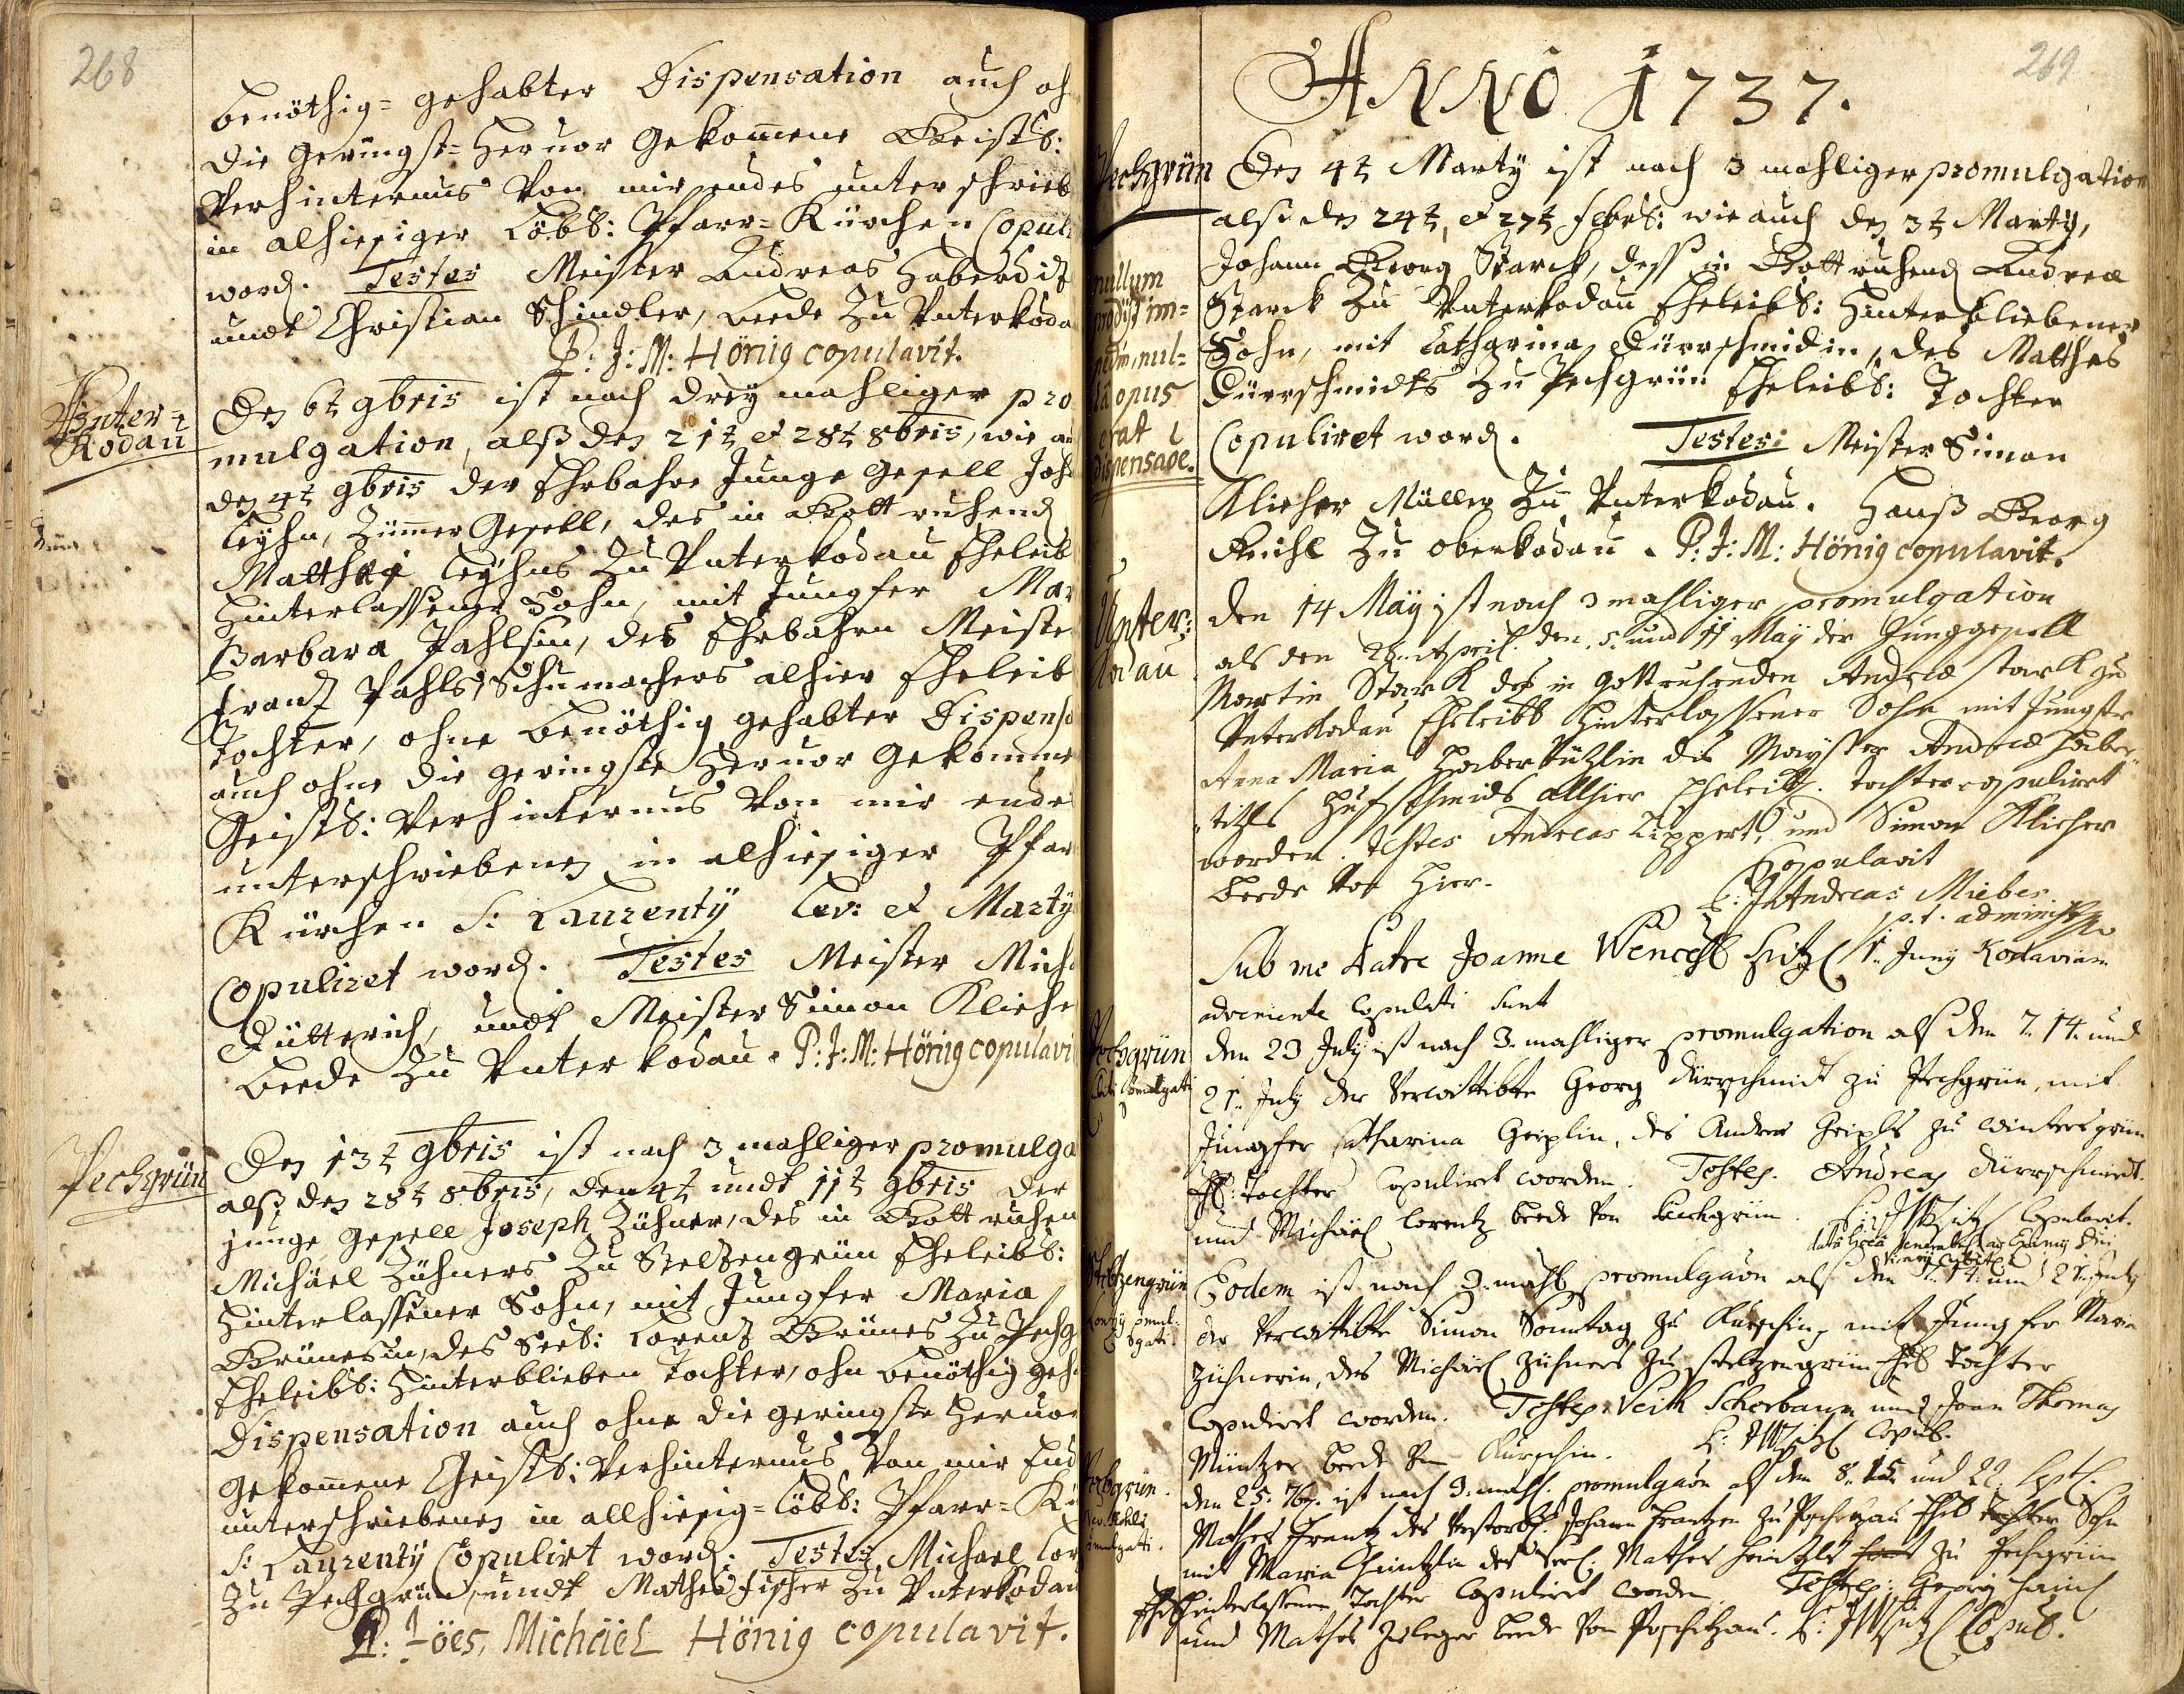 268
benöthig= gehabter Dispensation auch oh
die geringst= Hervor gekom̄ene Geistl:
Verhinternus von mir endes unterschrieb
in alhiesiger Löbl: Pfarr=Kürchen Copuli
word. Testes Meister Andreas Haberditz
undt Christian Schindler, beede Zu Unterkoda
P: J: M: Hönig copulavit.
Unter=
Kodau
Den 6t 9bris ist nach dreymahliger pro
mulgation, alß den 21t et 28t 8bris, wie auch
den 4t 9bris der Ehrbahre Junge gesell Joh
Leyhn, Zim̄er Gesell, des in Gott ruhend
Matthei Leyhns Zu Unterkodau Eheleib
Hinterlassener Sohn, mit Jungfer Mar
Barbara Pahlsin, des Ehrbahrn Meiste
Frantz Pahls, Schumachers alhier Eheleib
Tochter, ohne benöthig gehabter Dispensa
auch ohne die geringste Hervor Gekomme
Geistl: Verhinternus von mir endes
unterschriebenen in alhiesiger Pfar
Kürchen S: Laurenty Lev: et Marty
Copuliret word. Testes Meister Mich
Dütterich, undt Meister Simon Klieher
beede Zu Unterkodau. P: J: M: Hönig copulavi
Pechgrün
Den 13t 9bris ist nach 3 mahliger promulga
alß den 28t 8bris, den 4t undt 11t 9bris der
junge gesell Joseph Zühner, des in Gott ruhen
Michäel Zühners Zu Stelzengrün Eheleibl:
Hinterlassener Sohn, mit Jungfer Maria
Grünesin, des Seel: Lorentz Grünes Zu Pechg
Eheleibl: Hinterblieben Tochter, ohn benöthig geh
Dispensation auch ohne die geringste Hervor
gekom̄ene Geistl: Verhinternus von mir End
unterschriebenen in allhiesig=Löbl: Pfarr=Kü
S: Laurenty Copulirt word: Testes Michael Lor
Zu Pechgrün, undt Mathes Fischer Zu Unterkodau
P: Jöes, Michäel Hönig copulavit.
269
ANNO 1737.
Pechgrün
Den 4t Marty ist nach 3 mahliger promulgation
alß den 24t, et 27t Febr: wie auch den 3t Marty,
Johann Georg Starck, deß in Gott ruhend Andrea
Starck Zu Unterkodau Eheleibl: Hinterbliebener
Sohn, mit Catharina Dürrschmidin, des Matthes
Dürrschmidts Zu Pechgrün Eheleibl: Tochter
Copuliret word. Testes: Meister Simon
Klieher Müller Zu Unterkodau. Hanß Georg
Reichl Zu Oberkodau. P: J: M: Hönig copulavit.
nullum
prodijt im=
pedm, nul=
la opus
erat
dispensaoe.
Unter:
Kodau
den 14 Maÿ ist nach 3 mahliger promulgation
als den 28 April. den. 5. und 11 Maÿ der Junggesell
Martin Stark des in Gott ruhenden Andreæ Stark zu
Unterkodau Eheleibl Hinterlassener Sohn mit Jungfer
Anna Maria Haberdützlin des Maÿster Andreæ Haber=
titzls Hufschmids allhier Eheleibl. Tochter copulirt
worden. Testes Andreas Lippert, und Simon Klieher
beede von Hier. Copulavit
P: J Andreas Mieber
p. t. administr
Sub me Patre Joanne Wencesl Hitzl 1. Juny Kodaviam
adveniente Copulati sunt
Pechgrün
den 23 July ist nach 3. mahliger promulgation alß den 7. 14. und
21. July der verwittibte Georg Dürrschmidt zu Pechgrün, mit
Jungfer Catharina Geiplin, des Andreæ Geipls zu Wintersgrün
Ehl: Tochter Copulirt worden. Testes. Andreas Dürrschmidt
und Michäel Lorentz beede von Pechgrün. Copulavit.
Stelzengrün
Eodem ist nach 3. mahl promulgaon alß den 7. 14. und 21. July
der verwittibte Simon Sonntag zu mit Jungfer Maria
Zühnerin, des Michäel Zühners zu Steltzengrün Ehl Tochter
Copulirt worden. Testes. Veith Scherbaum und Joan Thomas
Müntzer beede von Copul.
Pechgrün.
den 25. 7br. ist nach 3. mahl. promulgaon alß den 8. 15 und 22. Sept.
Mathes Frantz des verstorb. Johann Frantzen zu Poschetzau Ehl Sohn
mit Maria Heintzlin des Seel. Mathes Heintzls zu Pechgrün
Ehl Hinterlassene Tochter Copulirt worden. Testes: Georg
und Mathes beede von Poschetzau. Copul.